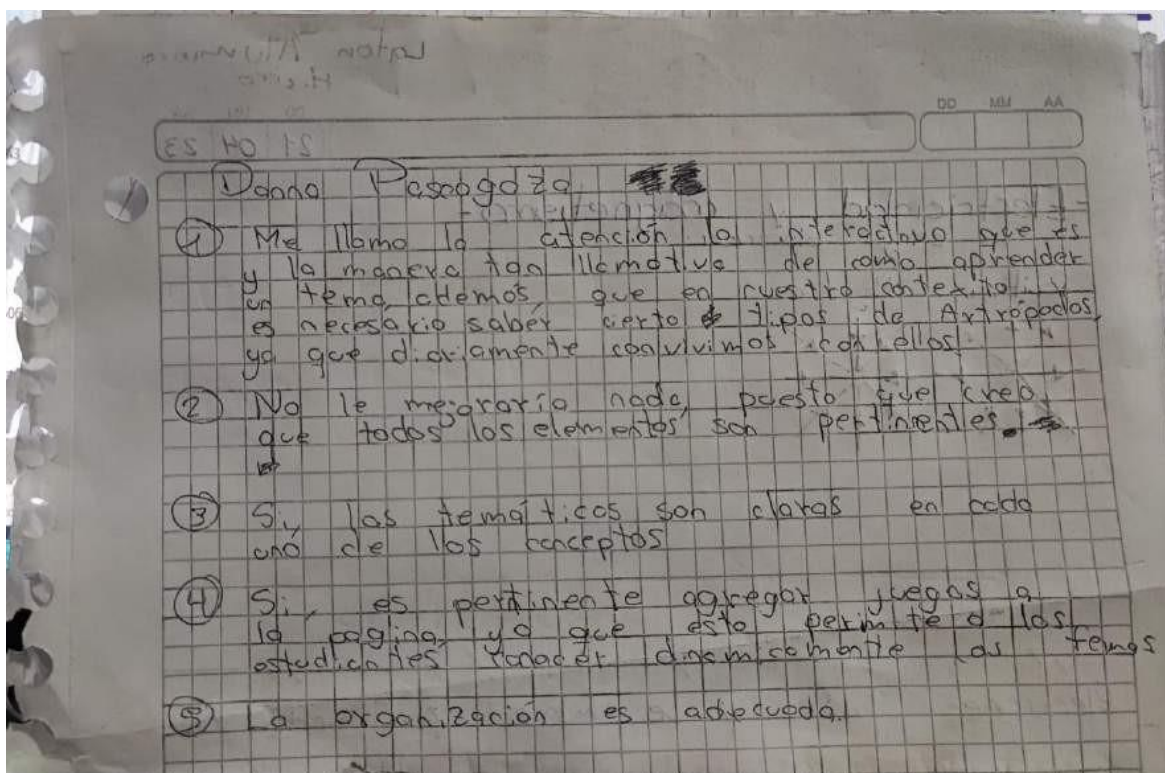 DD MM AA
Ddana Pascagaza
① Me llamo la atención lo interactivo que es
y la manera tan llamativa de como aprender
un tema ademos, que en nuestro contexto
es necesario saber cierto tipos de Artropodos,
ya que diariamente convivimos con ellos.
② No le mejoraria nada, puesto que creo
que todos los elementos son pertinentes.
③ Si, las tematicas son claras en cada
uno de los conceptos
④ Si, es pertinente aggregar juegos a
la pagina, ya que esto permite a los
estudiantes dinamicamente los temas
⑤ La organización es adecuada.